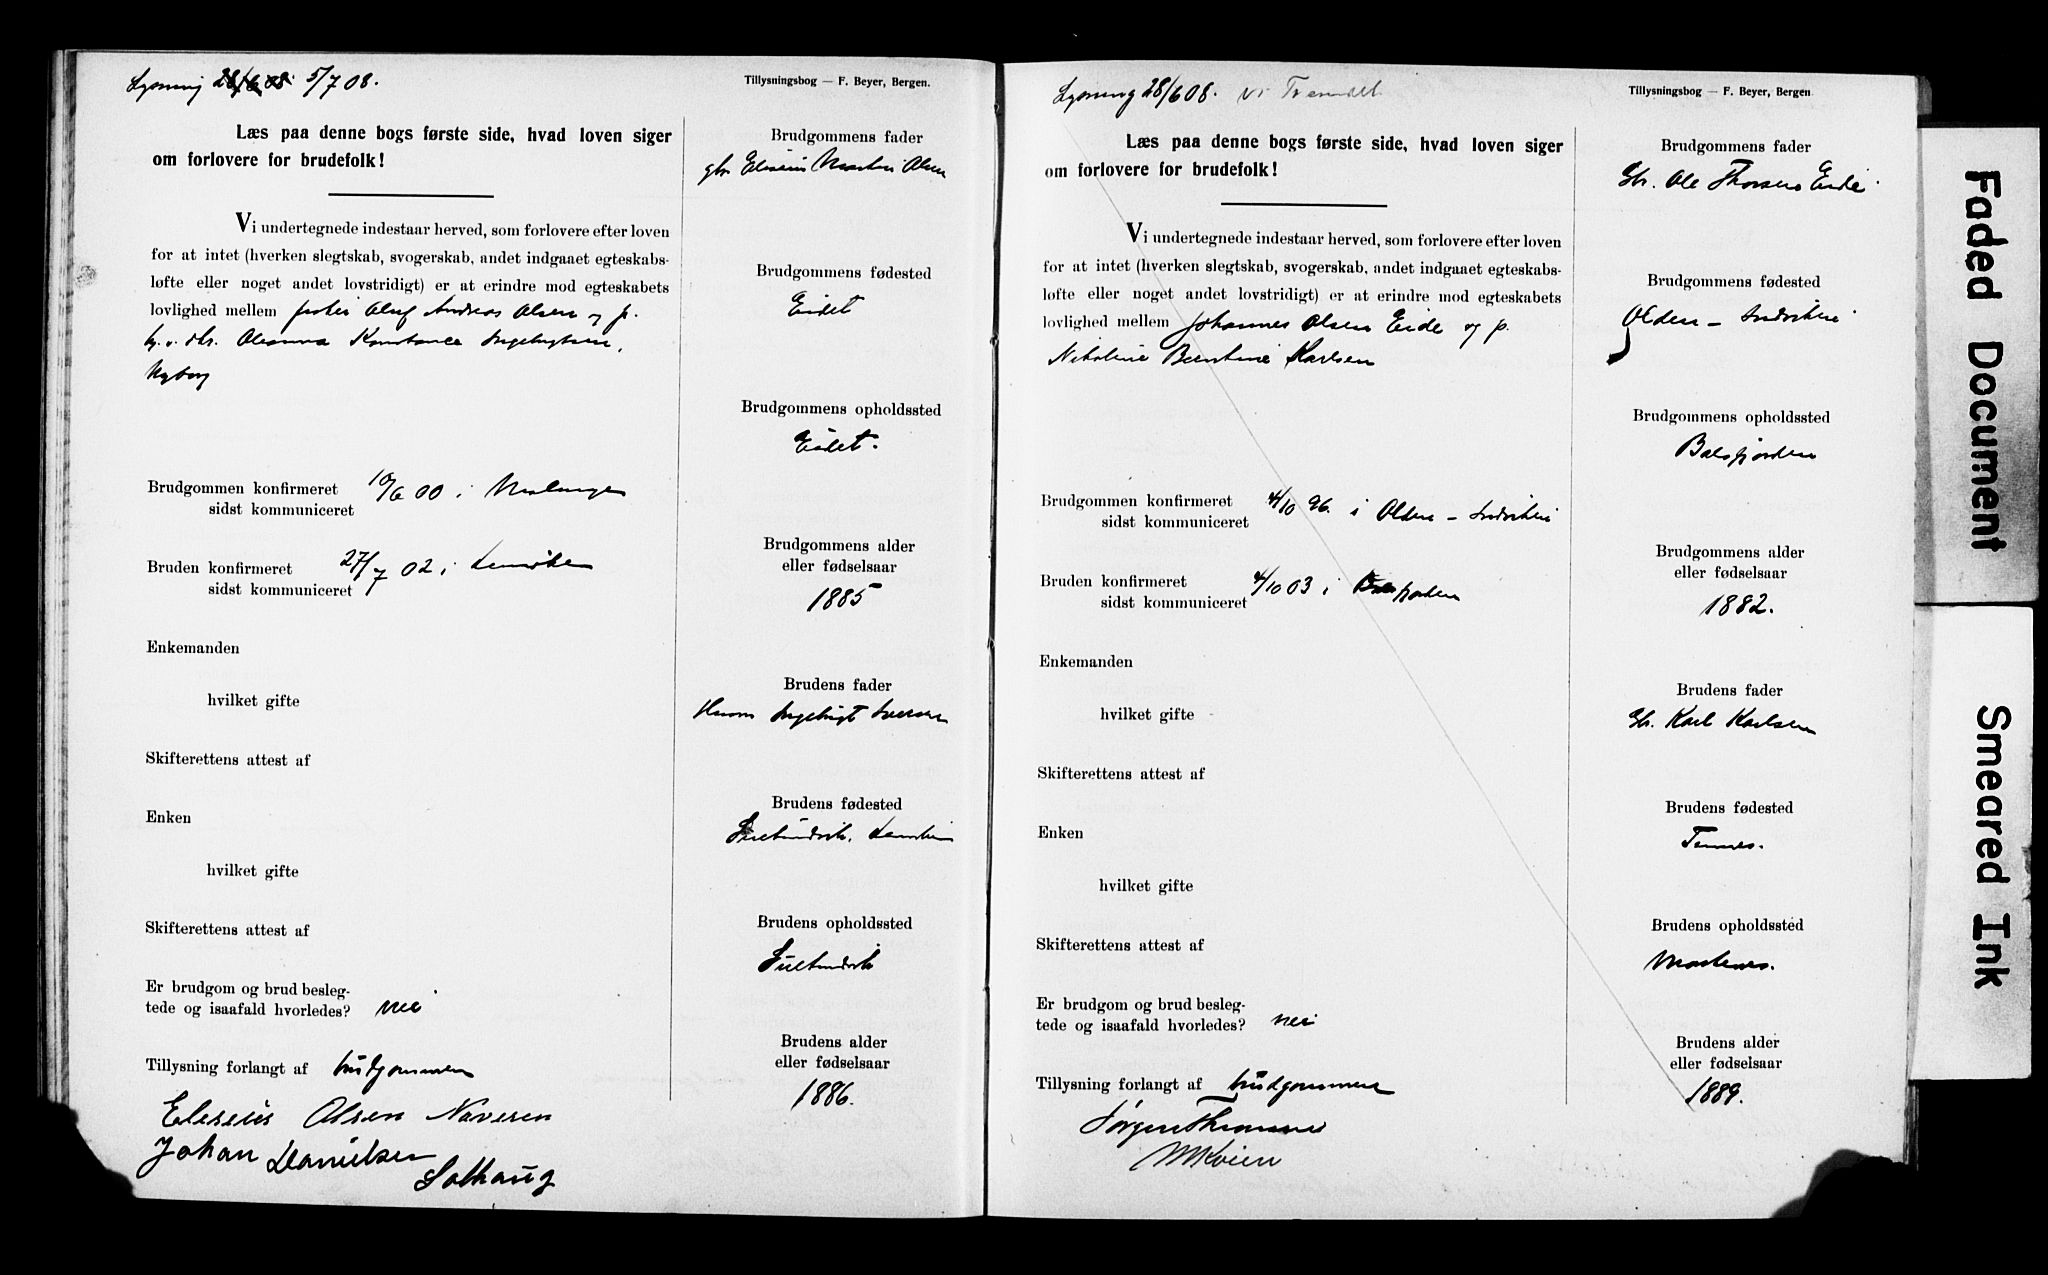 Lysning 28/6 08 5/7 08.
Tillysningsbog — F. Beyer, Bergen.
Læs paa denne bogs første side, hvad loven siger
om forlovere for brudefolk!
Vi undertegnede indestaar herved, som forlovere efter loven
for at intet (hverken slegtskab, svogerskab, andet indgaaet egteskabs-
løfte eller noget andet lovstridigt) er at erindre mod egteskabets
lovlighed mellem Oluf Andreas Olsen og p.
Konstance Ingebrigtsen,
Nyborg
Brudgommen konfirmeret 10/6 00 i Malangen
sidst kommuniceret
Bruden konfirmeret 27/7 02 i Lenviken
sidst kommuniceret
Enkemanden
hvilket gifte
Skifterettens attest af
Enken
hvilket gifte
Skifterettens attest af
Er brudgom og brud besleg-
tede og isaafald hvorledes? nei
Tillysning forlangt af brudgommen
Eliseus Olsen Naveren
Johan Danielsen
Solhaug
Brudgommens fader
gbr Eliseus Martin Olsen
Brudgommens fødested
Eidet
Brudgommens opholdssted
Eidet.
Brudgommens alder
eller fødselsaar
1885
Brudens fader
Husm Ingebrigt Iversen
Brudens fødested
Lenviken
Brudens opholdssted
Brudens alder
eller fødselsaar
1886.
Lysning 28/6 08.
Tillysningsbog — F. Beyer, Bergen.
Læs paa denne bogs første side, hvad loven siger
om forlovere for brudefolk!
Vi undertegnede indestaar herved, som forlovere efter loven
for at intet (hverken slegtskab, svogerskab, andet indgaaet egteskabs-
løfte eller noget andet lovstridigt) er at erindre mod egteskabets
lovlighed mellem Johannes Olsen Eide og p.
Nikoline Berntine Karlsen
Brudgommen konfirmeret 4/10 96. i Olden – Indviken
sidst kommuniceret
Bruden konfirmeret 4/10 03 i Balsfjorden
sidst kommuniceret
Enkemanden
hvilket gifte
Skifterettens attest af
Enken
hvilket gifte
Skifterettens attest af
Er brudgom og brud besleg-
tede og isaafald hvorledes? nei
Tillysning forlangt af brudgommen
Jørgen
M Kvien
Brudgommens fader
Gbr. Ole Thorsen Eide.
Brudgommens fødested
Olden – Indviken
Brudgommens opholdssted
Balsfjorden
Brudgommens alder
eller fødselsaar
1882.
Brudens fader
Gbr. Karl Karlsen
Brudens fødested
Tennes.
Brudens opholdssted
Brudens alder
eller fødselsaar
1889.
Faded Document
Smeared Ink